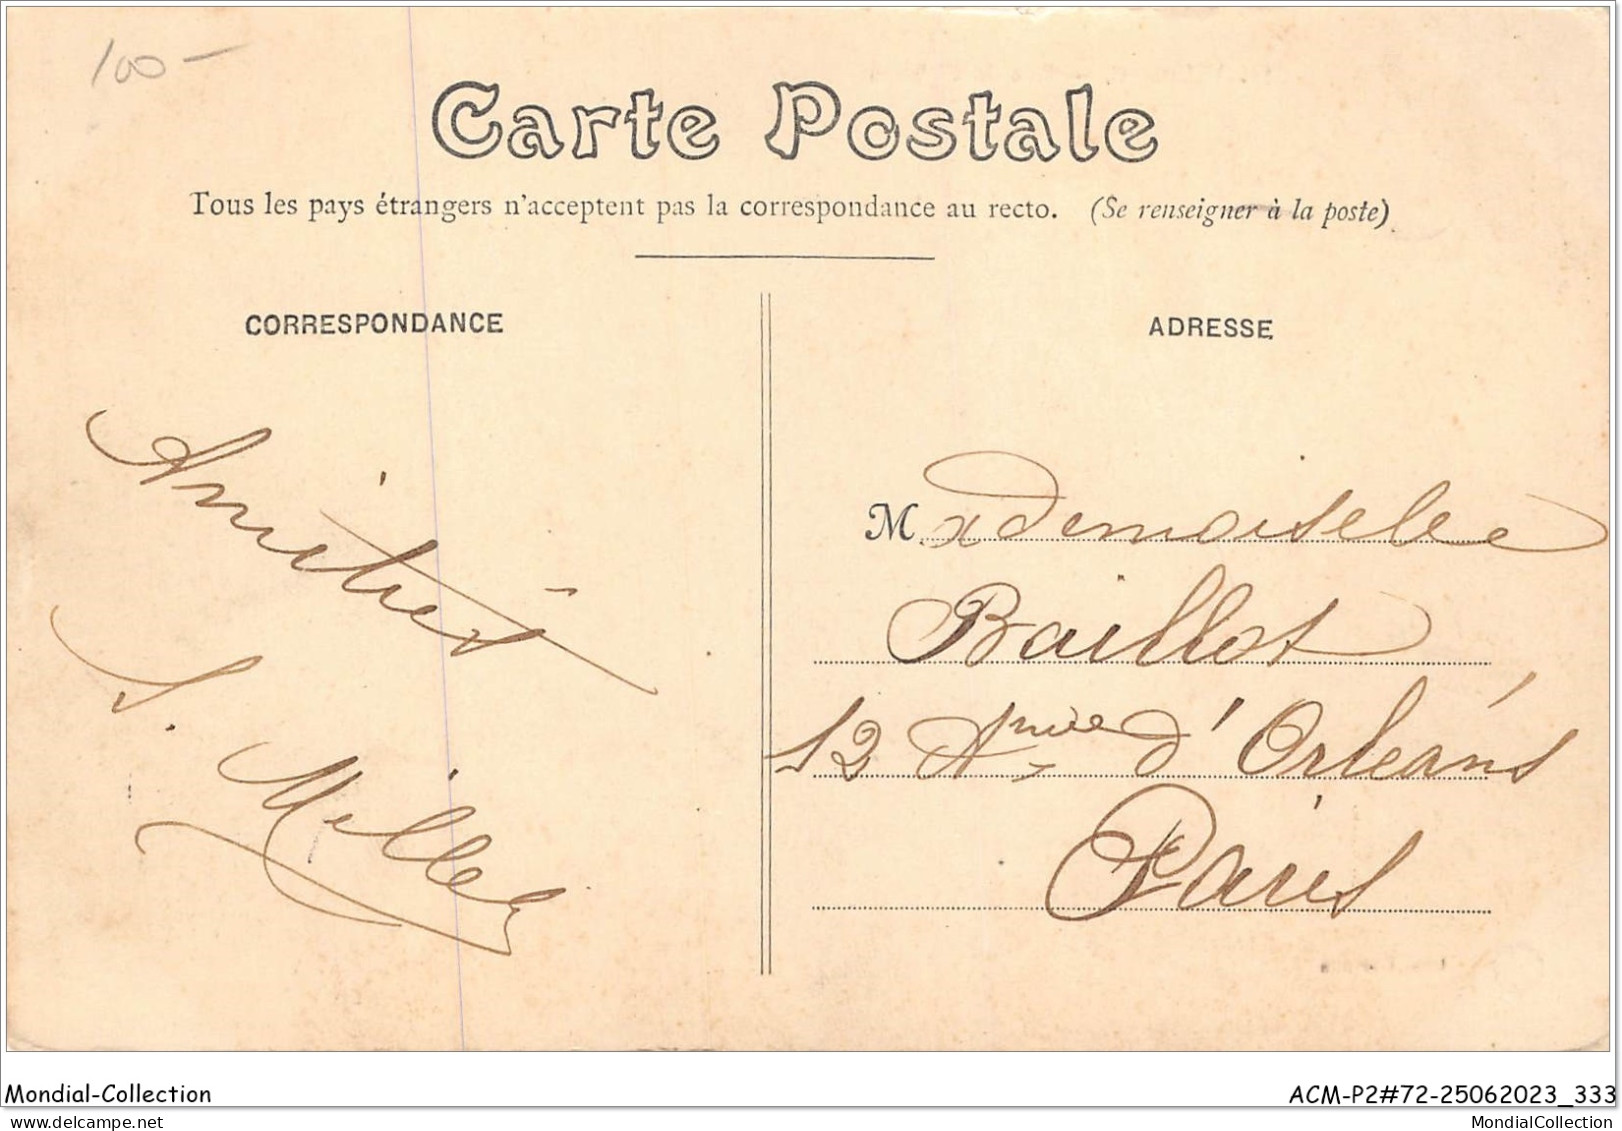 100 -
Carte Postale
Tous les pays étrangers n'acceptent pas la correspondance au recto. (Se renseigner à la poste)
CORRESPONDANCE
ADRESSE
Amitiés
Mademoiselle
Baillot
12 Avnue d'Orléans
Paris
Mondial-Collection
ACM-P2#72-25062023_333
MondialCollection